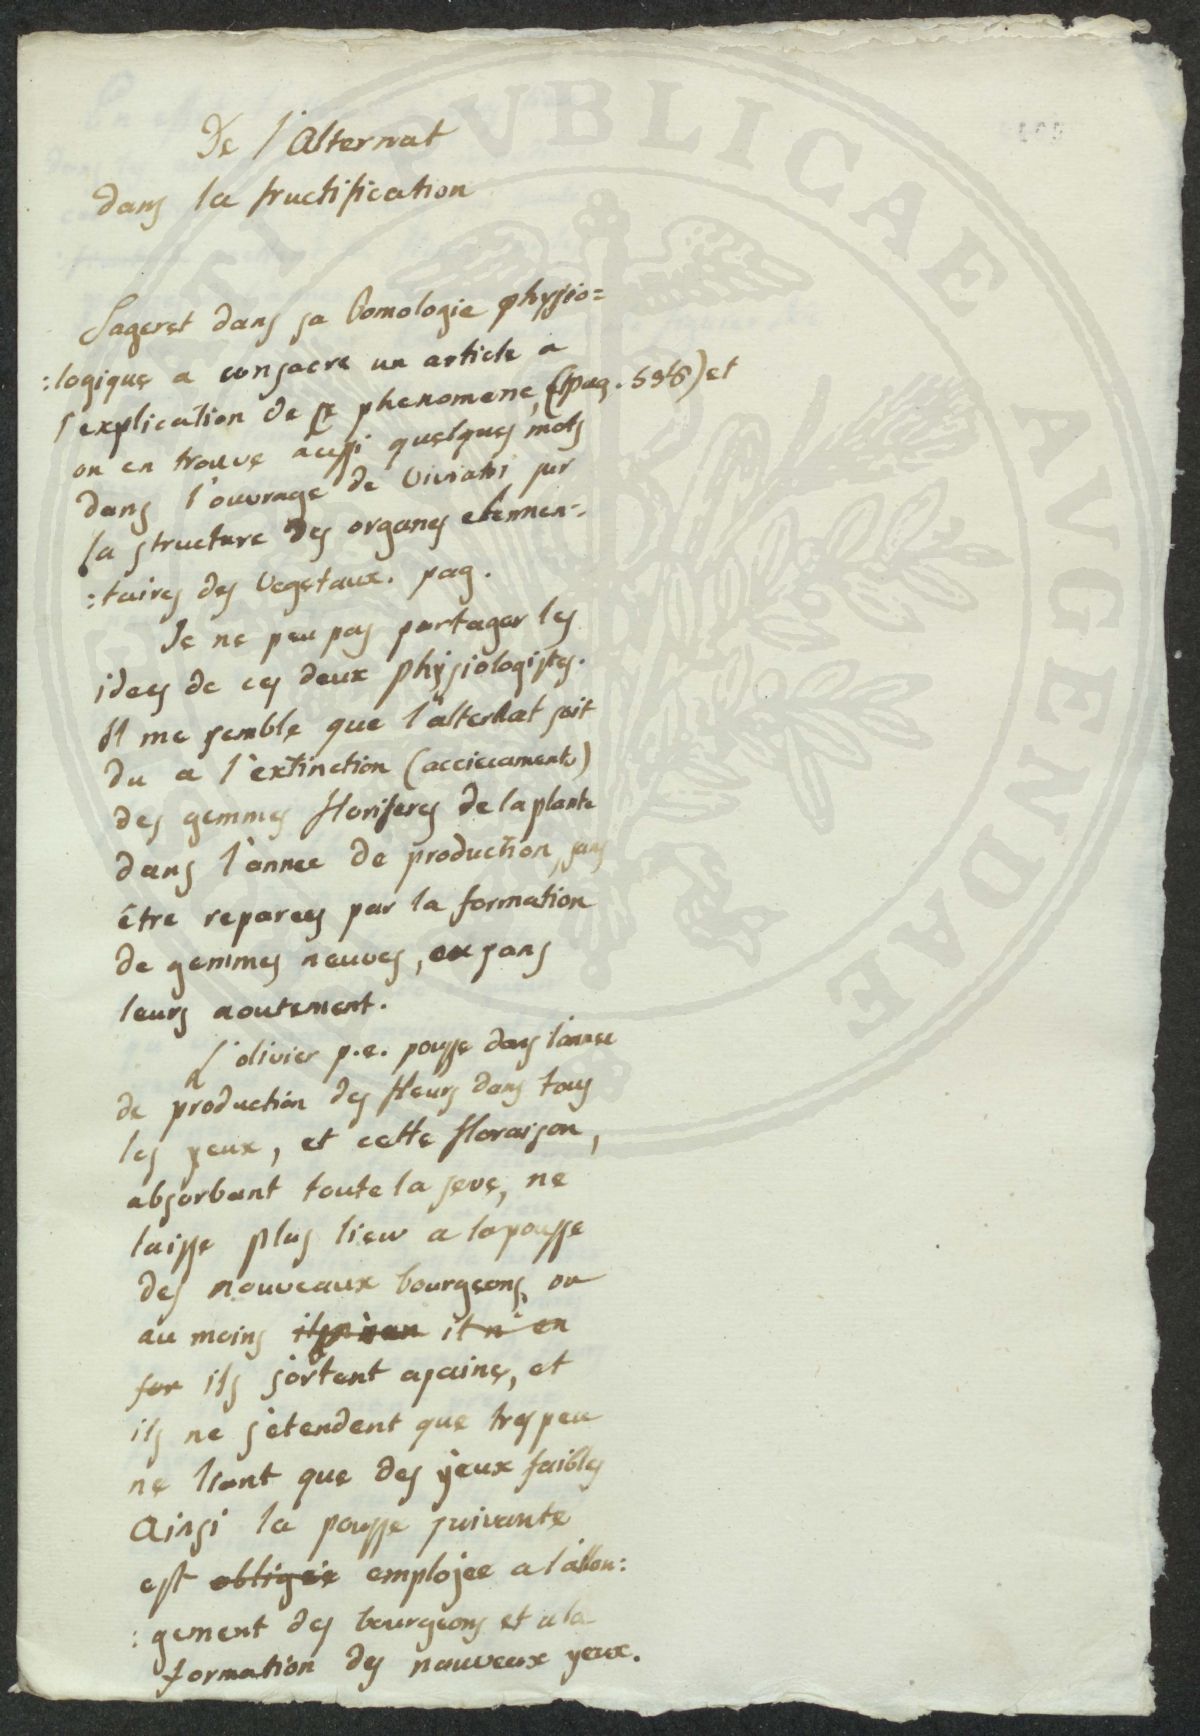 De l'Alternat
dans la fructification
Sageret dans sa Pomologie physio=
:logique a consacre un article a
l'explication de ce phenomene, (pag. ) et
on en trouve aussi quelques mots
dans l'ouvrage de Viviani sur
la structure des organes elemen=
:taires des Vegetaux. pag.
Je ne peu pas partager les
idees de ces deux physiologistes.
Il me semble que l'alternat soit
du a l'extinction (acciecamento)
des gemmes floriferes de la plante
dans l'annee de production, sans
être reparees par la formation
de gemmes neuves, ou sans
leurs aoutement.
L'olivier p.e. pousse dans l'annee
de production des fleurs dans tous
les yeux, et cette floraison,
absorbant toute la seve, ne
laisse plus lieu a la pousse
des nouveaux bourgeons, ou
au moins il n'en
for ils sortent apaine, et
ils ne s'etendent que tres peu
ne que des yeux faibles
Ainsi la pousse suivante
est obligée employee a l'allon:
:gement des bourgeons et a la
formation des nouveaux yeux.
PVBLICAE AVGENDAE